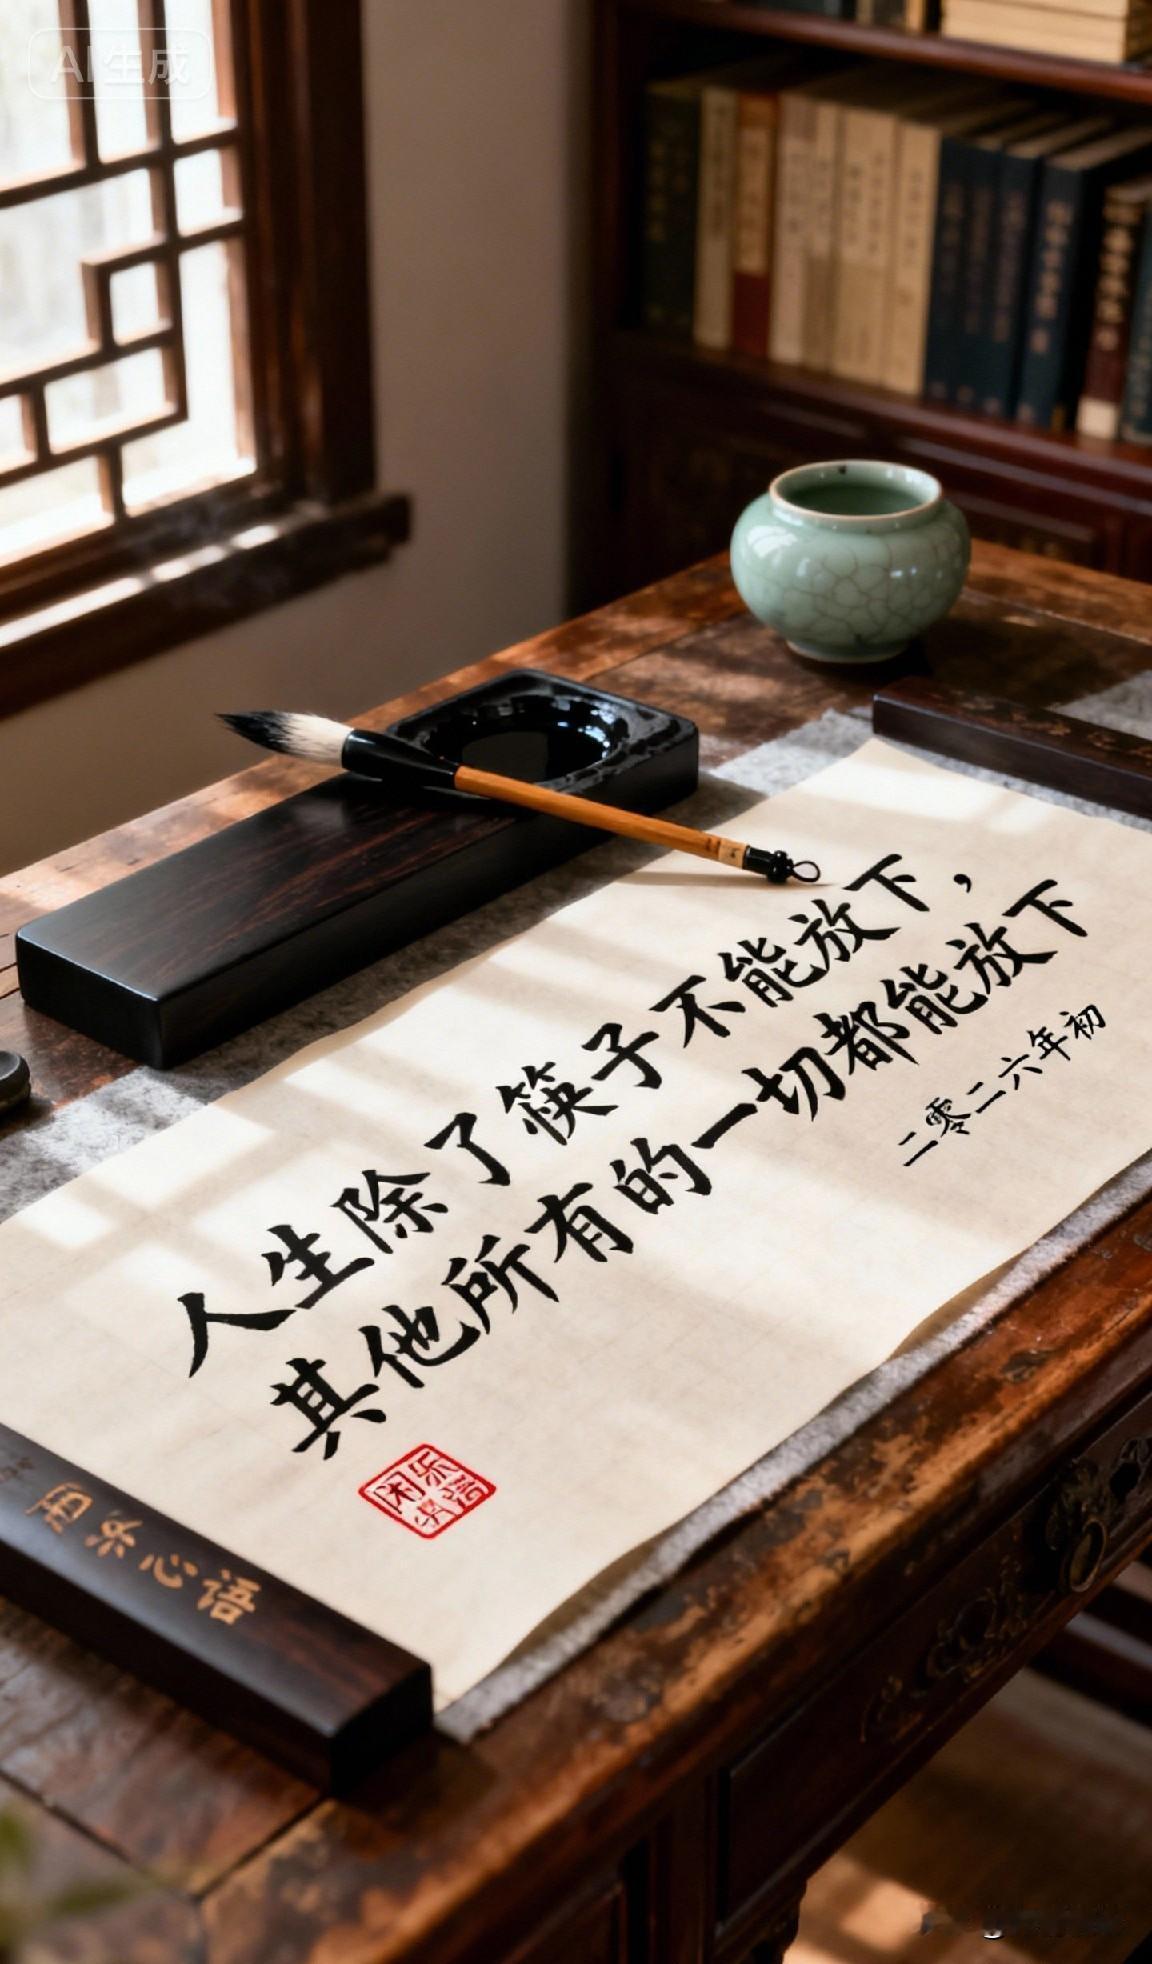 AI生成
人生除了筷子不能放下，
其他所有的一切都能放下
二零二六年初
心语